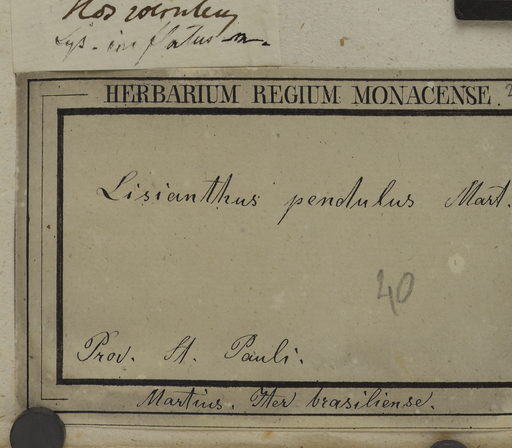 Lys. inflatus m.
HERBARIUM REGIUM MONACENSE. 2
Lisianthus pendulus Mart.
40
Prov. St. Pauli.
Martius. Iter brasiliense.